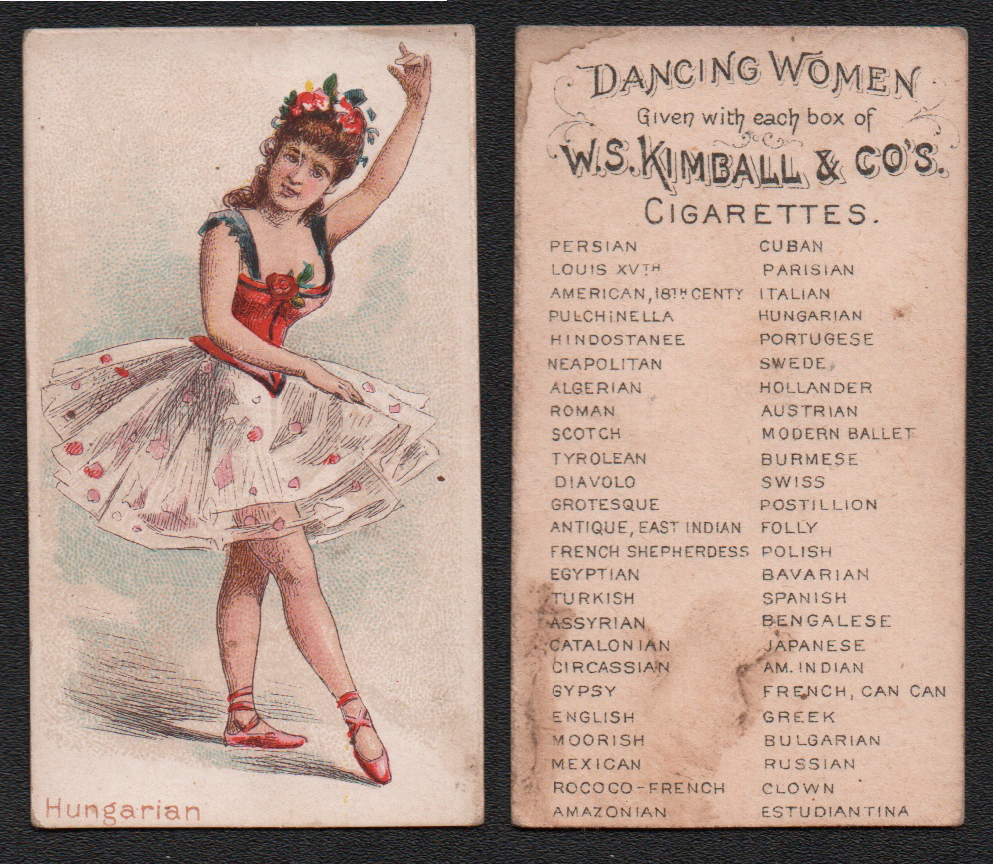 Hungarian
DANCING WOMEN
Given with each box of
W.S. KIMBALL & CO'S.
CIGARETTES.
PERSIAN
LOUIS XVTH
AMERICAN, 18TH CENTY
PULCHINELLA
HINDOSTANEE
NEAPOLITAN
ALGERIAN
ROMAN
SCOTCH
TYROLEAN
DIAVOLO
GROTESQUE
ANTIQUE, EAST INDIAN
FRENCH SHEPHERDESS
EGYPTIAN
TURKISH
ASSYRIAN
CATALONIAN
CIRCASSIAN
GYPSY
ENGLISH
MOORISH
MEXICAN
ROCOCO-FRENCH
AMAZONIAN
CUBAN
PARISIAN
ITALIAN
HUNGARIAN
PORTUGESE
SWEDE
HOLLANDER
AUSTRIAN
MODERN BALLET
BURMESE
SWISS
POSTILLION
FOLLY
POLISH
BAVARIAN
SPANISH
BENGALESE
JAPANESE
AM. INDIAN
FRENCH, CAN CAN
GREEK
BULGARIAN
RUSSIAN
CLOWN
ESTUDIANTINA